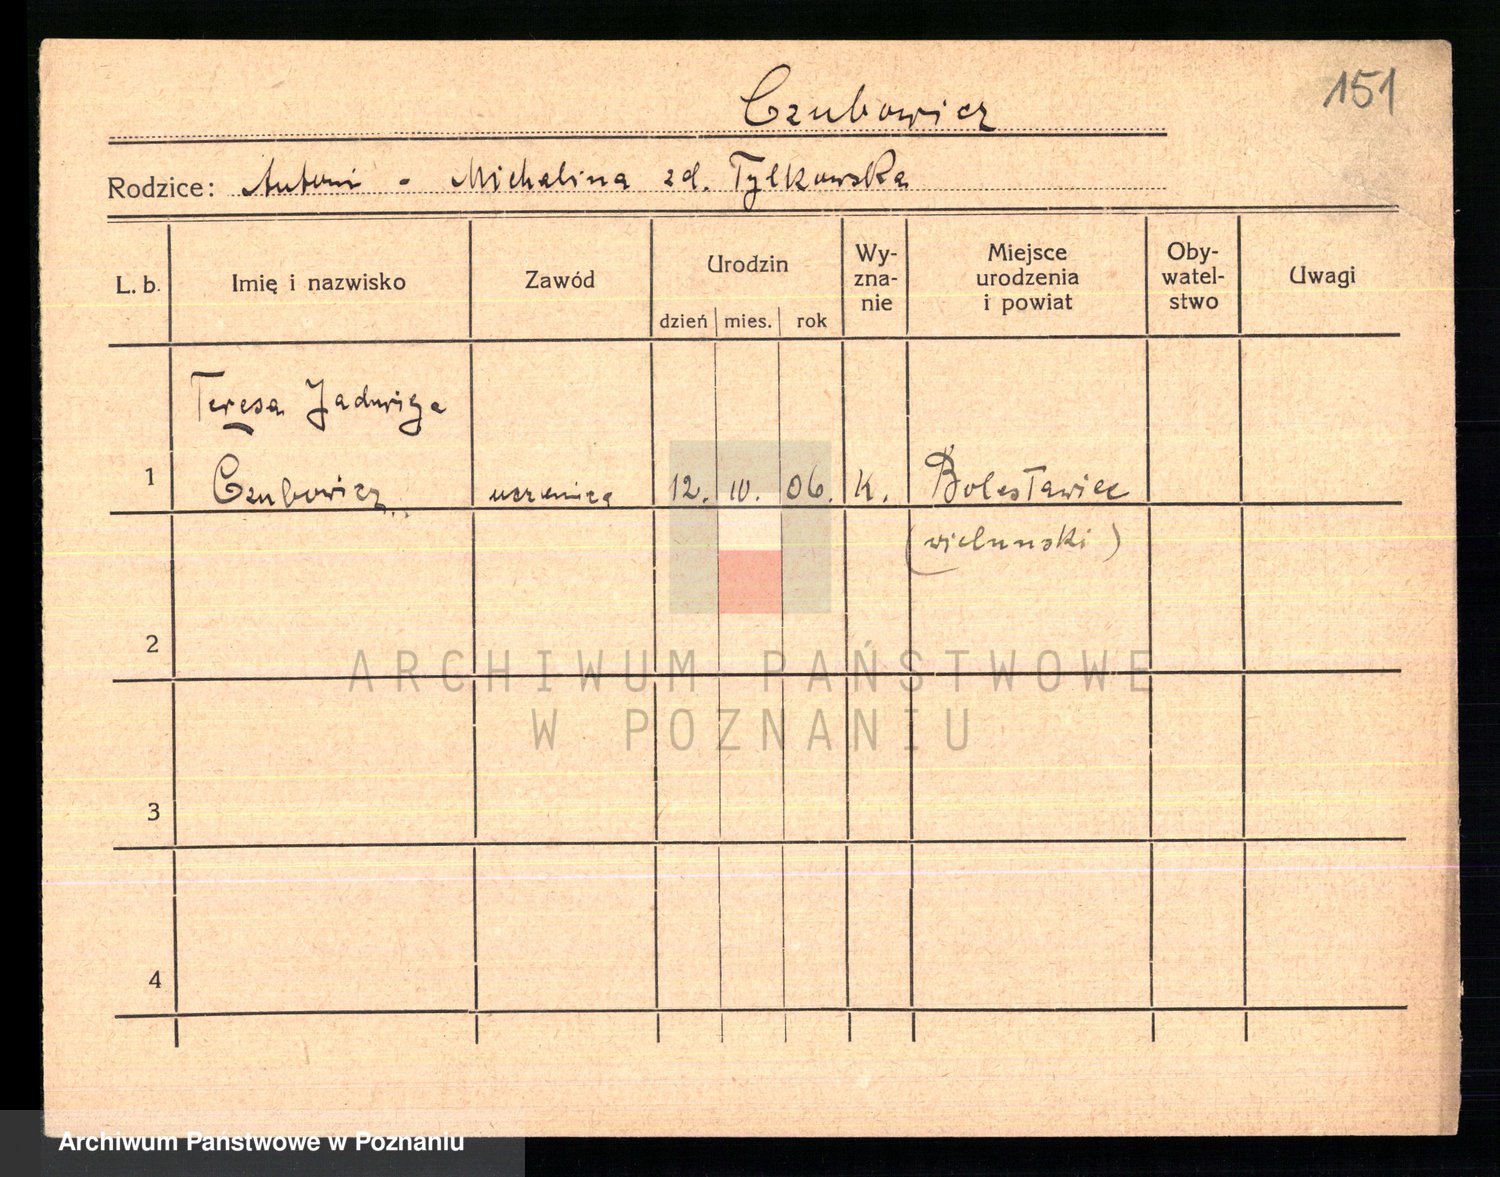 151
Czubowicz
Rodzice: Antoni - Michalina zd. Tylkowska
L. b. Imię i nazwisko Zawód Urodzin dzień mies. rok Wy-zna-nie Miejsce urodzenia i powiat Oby-watel-stwo Uwagi
Teresa Jadwiga
1 Czubowicz uczenica 12. 10. 06. K. Bolesławiec
(wieluński)
2
ARCHIWUM PAŃSTWOWE
W POZNANIU
3
4
Archiwum Państwowe w Poznaniu